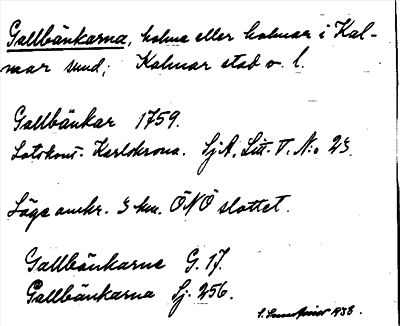 Gallbänkarna, holme eller holmar i Kal-
mar sund; Kalmar stad o. l.
Gallbänkar 1759.
Lotskont. Karlskrona. SjA, Litt. V. N:o 23.
Läge omkr. 3 km. ÖNÖ slottet.
Gallbänkarne G. 17.
Gallbänkarna Sj. 256.
1938.